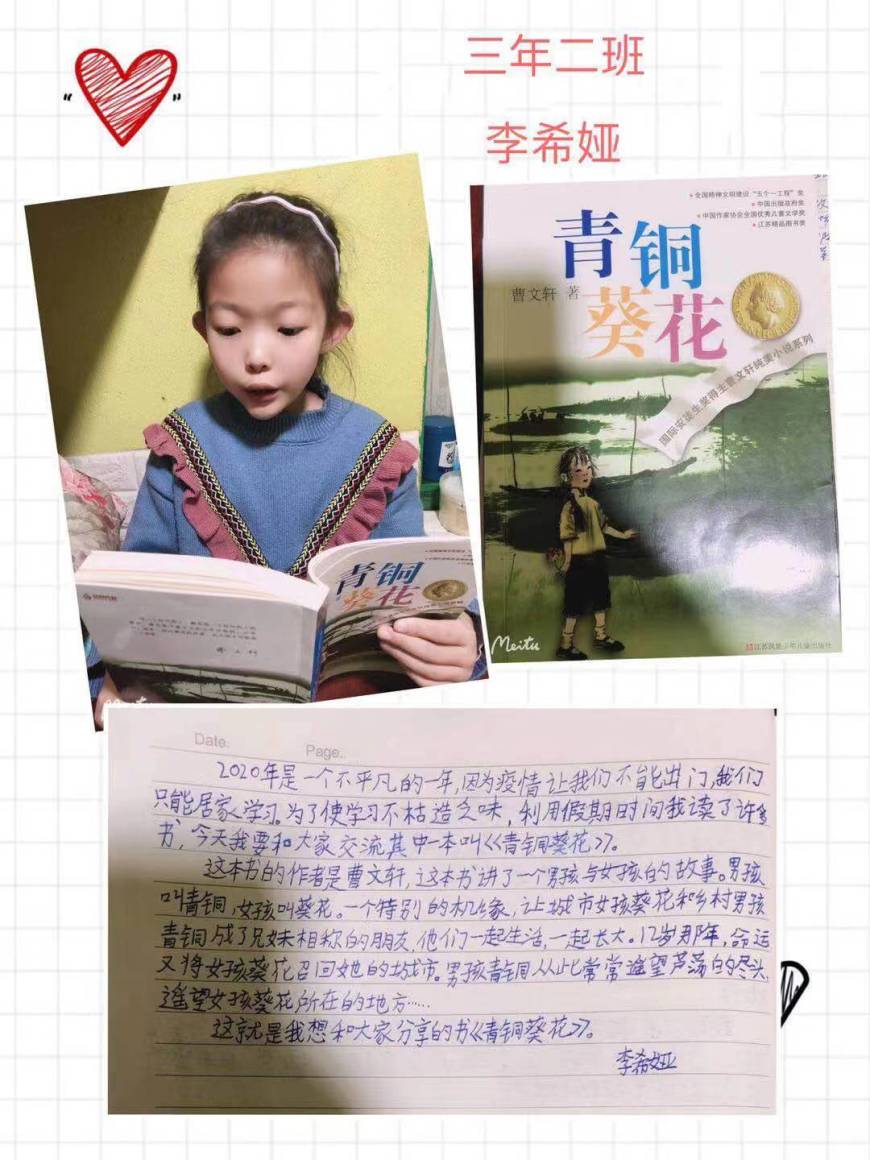 三年二班
李希娅
全国精神文明建设"五个一工程"奖
中国出版政府奖
中国作家协会全国优秀儿童文学奖
江苏精品图书奖
青铜
葵花
曹文轩 著
国际安徒生奖得主曹文轩纯美小说系列
江苏凤凰少年儿童出版社
Meitu
青铜
葵花
曹文轩
Date.
Page..
2020年是一个不平凡的一年,因为疫情让我们不能出门,我们
只能居家学习。为了使学习不枯造乏味,利用假期时间我读了许多
书,今天我要和大家交流其中一本叫《青铜葵花》。
这本书的作者是曹文轩,这本书讲了一个男孩与女孩的故事。男孩
叫青铜,女孩叫葵花。一个特别的机缘,让城市女孩葵花和乡村男孩
青铜成了兄妹相称的朋友,他们一起生活,一起长大。12岁那年,命运
又将女孩葵花召回她的城市。男孩青铜从此常常遥望芦荡的尽头,
遥望女孩葵花所在的地方……
这就是我想和大家分享的书《青铜葵花》。
李希娅